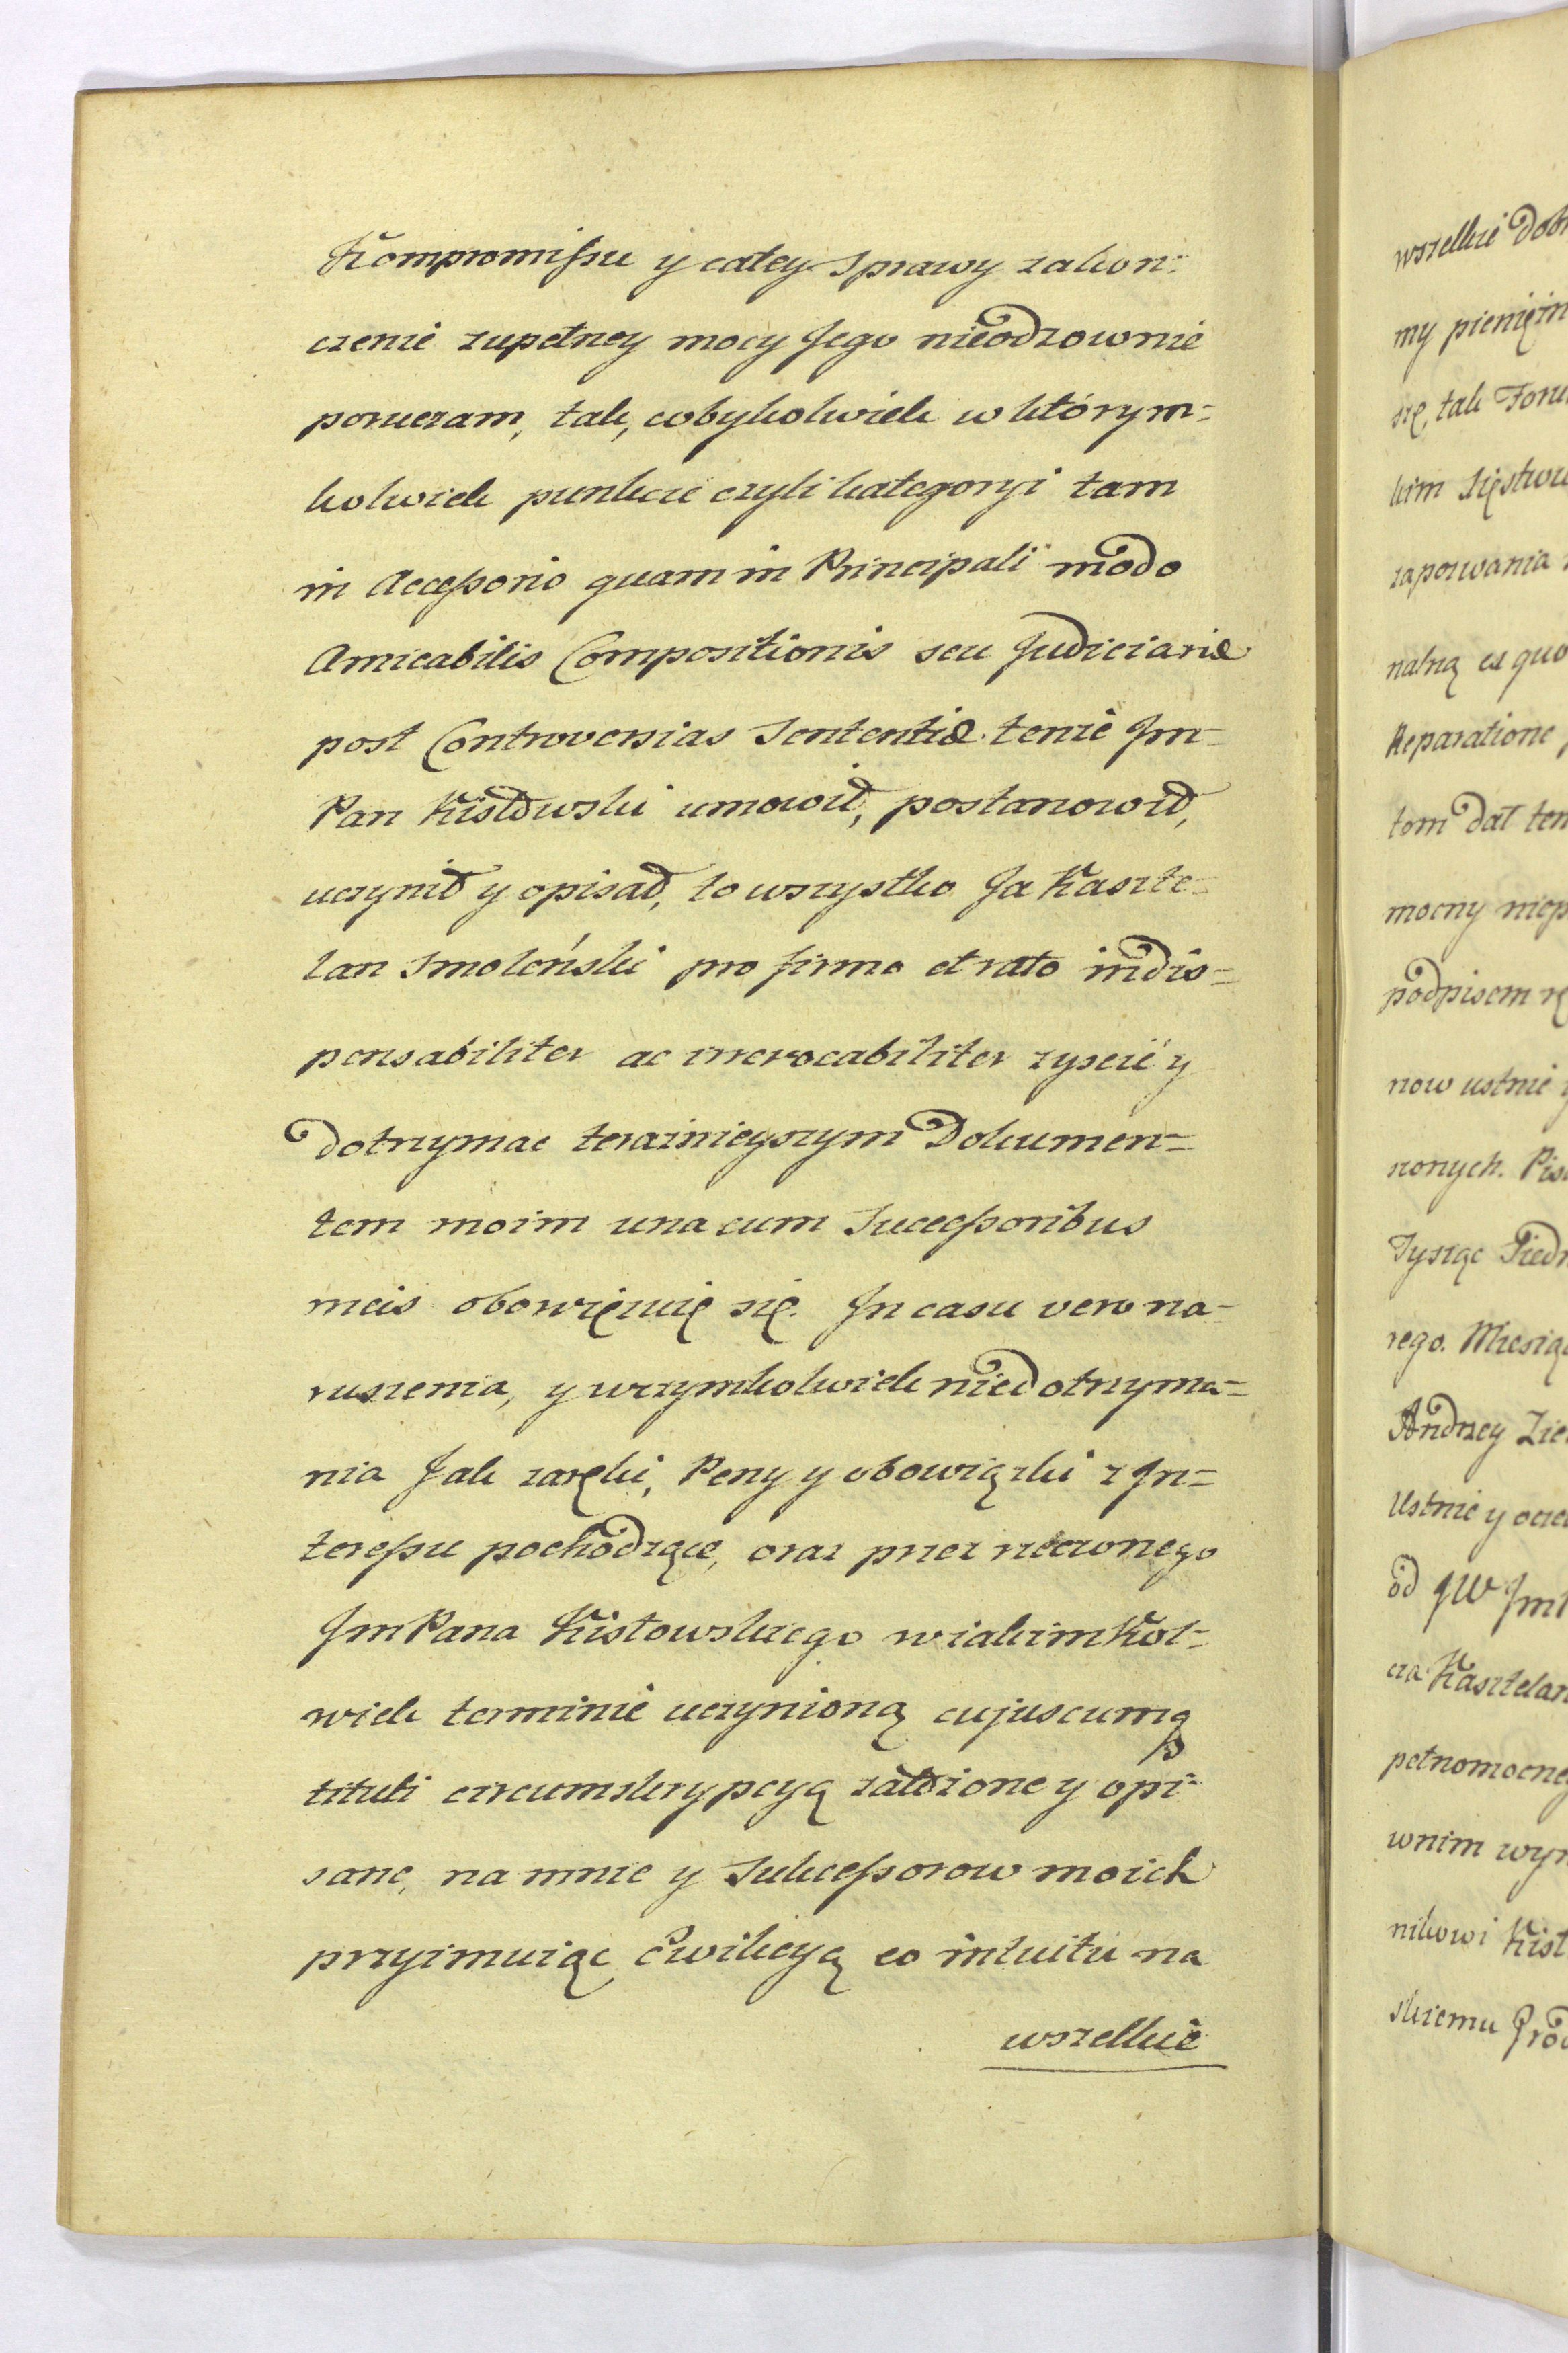 Kompromissu y całey Sprawy zakon=
czenie zupełney mocy Jego nieodzownie
poruczam, tak, cobykolwiek w którym=
kolwiek punkcie czyli kategoryi tam
in Accessorio quam in Principali modo
Amicabilis Compositionis seu Judiciariæ
post Controversias Sententiæ tenże Jm=
Pan Kistowski umowił, postanowił,
uczynił y opisał, to wszystko Ja Kaszte=
lan Smoleński pro firmo et rato indis=
pensabiliter ac irrevocabiliter zyscić y
dotrzymac teraznieyszym Dokumen=
tem moim una cum Successoribus
meis obowięzuię się. In casu vero na=
ruszenia, y wczymkolwiek niedotrzyma=
nia Jak zaręki, Peny y obowiązki z In=
teressu pochodzące, oraz przez rzeczonego
JmPana Kistowskiego w iakimkol=
wiek terminie uczynioną cujuscumq
tituli circumskrypcyą założone y opi=
sane, na mnie y Sukcessorow moich
przyimuiąc Ewikcyą eo intuitu na
wszelkie
wszelkie Dob
my pienięzn
się, tak
kim
zapozwania
nalną ex quo
Reparatione
tom dał ten
mocny niep
podpisem rę
now ustnie
szonych. Pis
Tysiąc Siedm
rego. Miesiąc
Andrzey Zie
Ustnie y ocze
od JW Jm
cza Kasztelan
pełnomocne
w nim wyr
nikowi Kist
skiemu